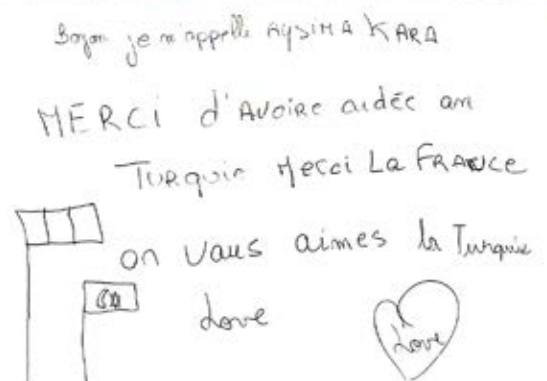 Bojon je m'appelle AYSIMA KARA
MERCi d'AVOiRE aidée an
TURQUie Merci La FRANCE
on vaus aimes la Turquie
Love
Love